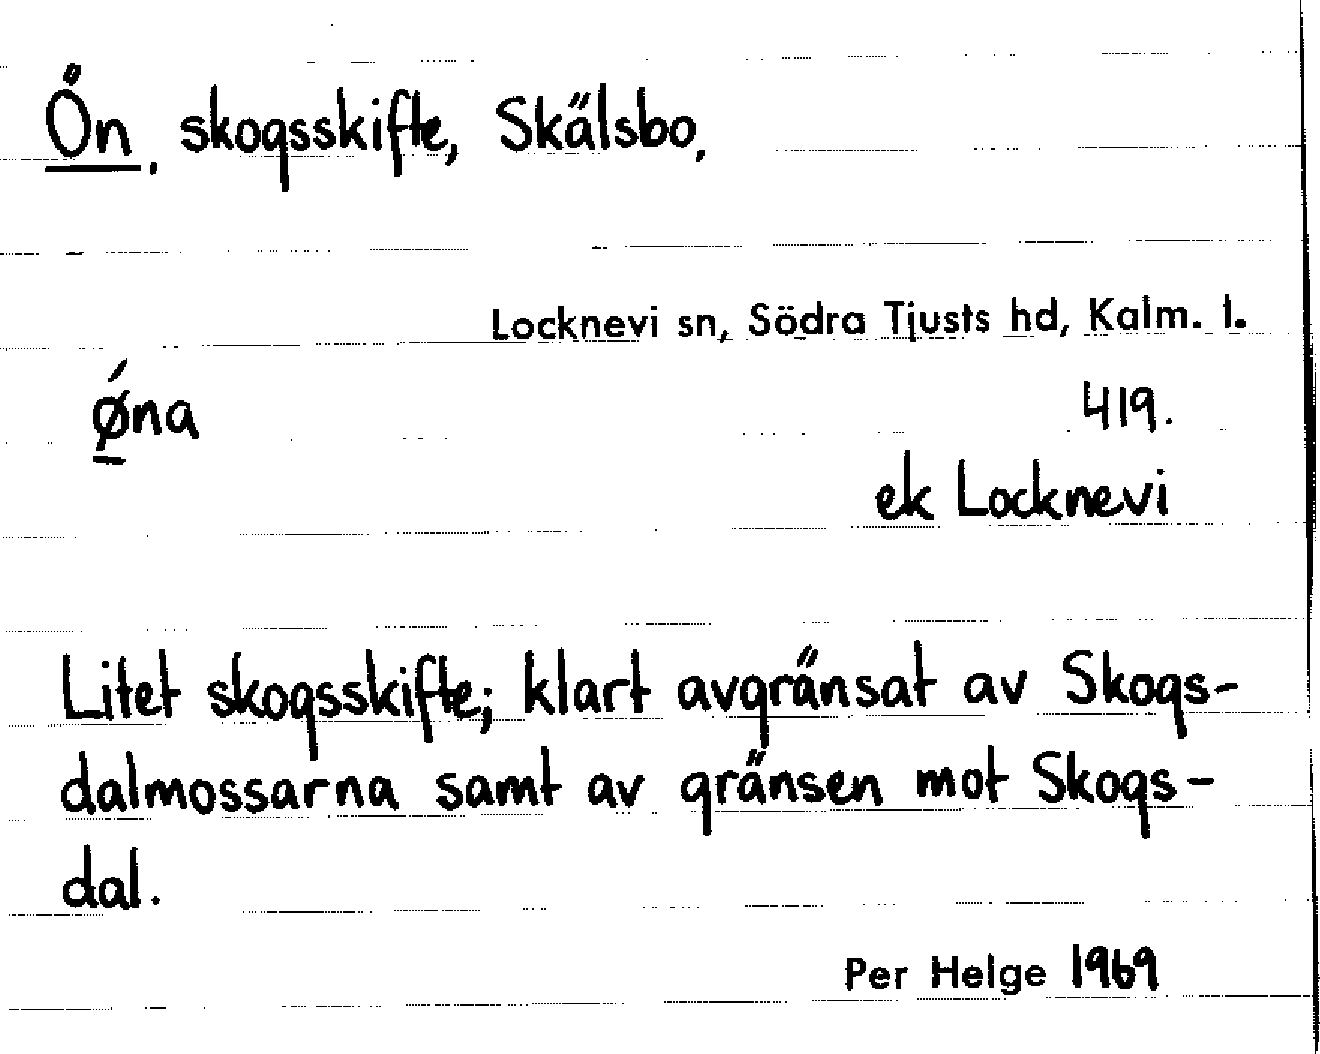 Ön, skogsskifte, Skälsbo,
Locknevi sn, Södra Tjusts hd, Kalm. l.
ǿ̱na
419.
ek Locknevi
Litet skogsskifte; klart avgränsat av Skogs-
dalmossarna samt av gränsen mot Skogs-
dal.
Per Helge 1969